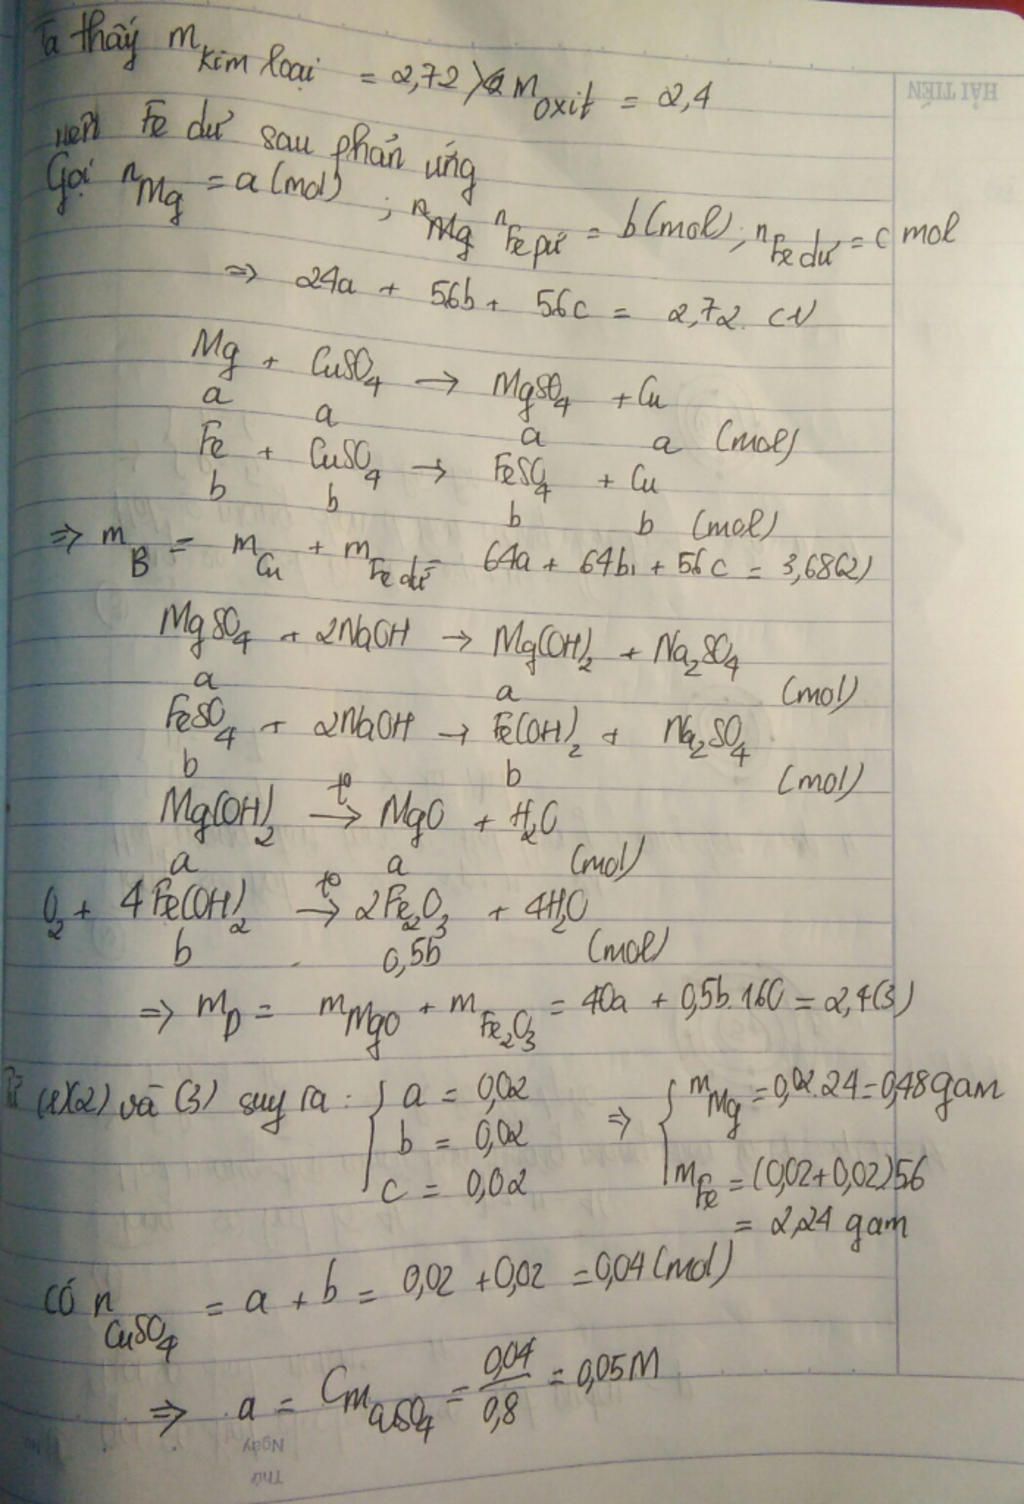 Ta thấy m kim loại = 2,72 > m oxit = 2,4
nên Fe dư sau phản ứng
Gọi nMg = a(mol) ; nMg nFe pứ = b(mol); nFe dư = c mol
=> 24a + 56b + 56c = 2,72. (1)
Mg + CuSO4 → MgSO4 + Cu
a a a a (mol)
Fe + CuSO4 → FeSO4 + Cu
b b b b (mol)
=> mB = mCu + mFe dư = 64a + 64b + 56c = 3,68(2)
MgSO4 + 2NaOH → Mg(OH)2 + Na2SO4
a a (mol)
FeSO4 + 2NaOH → Fe(OH)2 + Na2SO4
b b (mol)
Mg(OH)2 →t° MgO + H2O
a a (mol)
O2 + 4Fe(OH)2 →t° 2Fe2O3 + 4H2O
b 0,5b (mol)
=> mD = mMgO + mFe2O3 = 40a + 0,5b.160 = 2,4(3)
Từ (1)(2) và (3) suy ra : { a = 0,02 => { mMg = 0,02.24 = 0,48 gam
b = 0,02
c = 0,02 mFe = (0,02+0,02)56
= 2,24 gam
Có nCuSO4 = a + b = 0,02 + 0,02 = 0,04 (mol)
=> a = CM CuSO4 = 0,04/0,8 = 0,05M
HẢI TIẾN
Ngày
Thứ